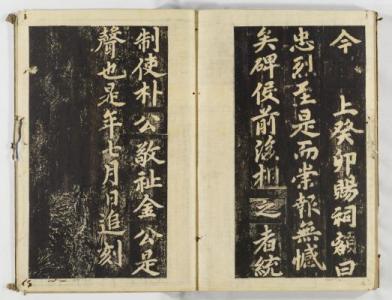 今　上癸卯賜祠額曰
忠烈至是而崇報無憾
矣碑役前後相之者統
制使朴公敬祉金公是
聲也是年七月日追刻